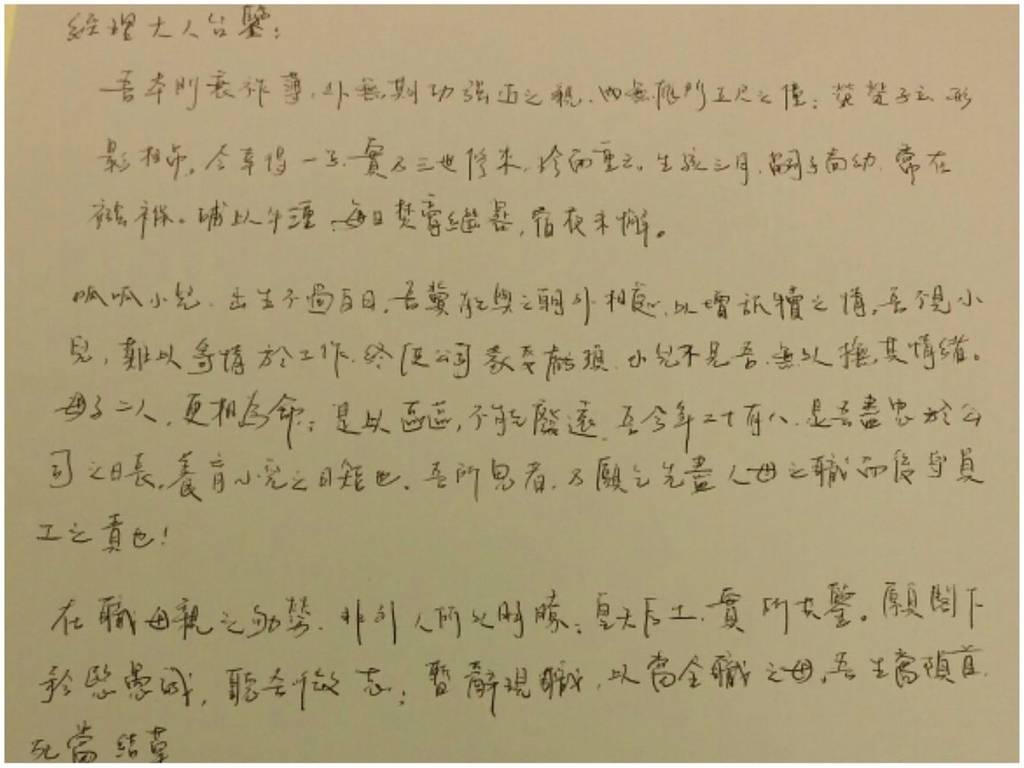 經理大人台鑒：
吾本門衰祚薄，外無期功強近之親，內無應門五尺之僮；煢煢孑立，形
影相弔。今幸得一子，實乃三世修來，珍而重之。生孩三月，嗣子尚幼，常在
襁褓。哺以牛湩，每日焚膏繼晷，宿夜未懈。
呱呱小兒，出生不過百日，吾冀能與之朝夕相處，以增舐犢之情。吾不見小
兒，難以寄情於工作，終使公司蒙受虧損，小兒不見吾，無以撫其情緒。
母子二人，更相為命；是以區區，不能廢遠。吾今年二十有八，是吾盡忠於公
司之日長，養育小兒之日短也。吾所思者，乃願乞先盡人母之職而後守員
工之責也！
在職母親之劬勞，非外人所父明勝；皇天后土，實所共鑒。願閣下
矜愍愚誠，聽吾微志；暫辭現職，以當全職之母。吾生當隕首，
死當結草